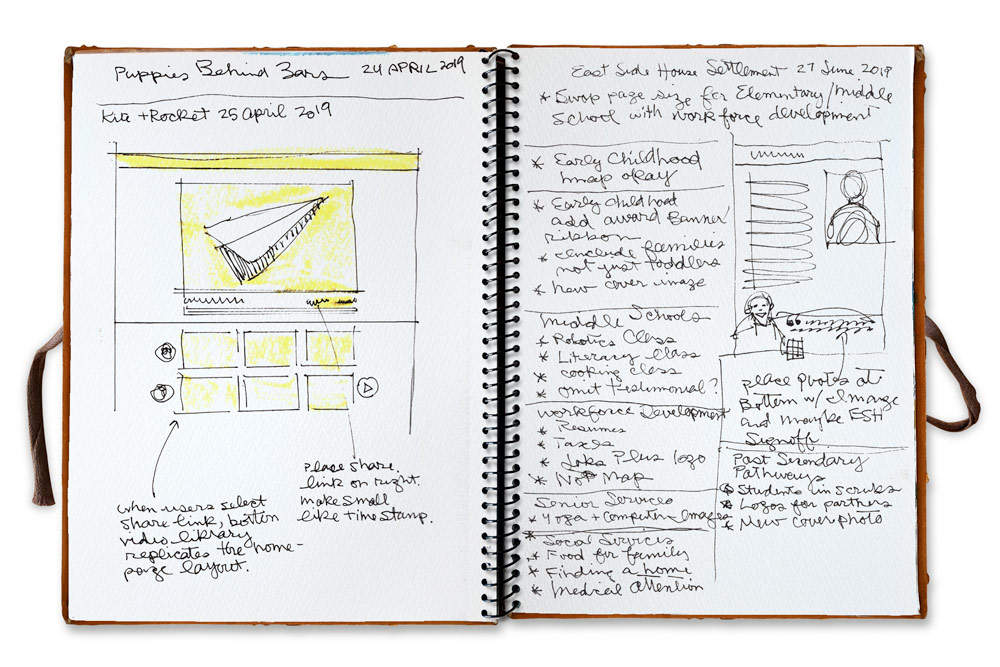 Puppies Behind Bars 24 APRIL 2019
Kite + Rocket 25 april 2019
Place share
link on right.
make small
like time stamp.
when users select
share link, bottom
video library
replicates the home-
page layout.
East Side House Settlement 27 June 2019
* Swap page size for Elementary/middle
School with workforce development
* Early Childhood
map okay
* Early Childhood
add award Banner/
ribbon
* include families
not just toddlers
* new cover image
Middle Schools
* Robotics Class
* Literary Class
* cooking class
* omit testimonial?
Workforce Development
* Resumes
* Taxes
* Jobs Plus logo
* No Map
Senior Services
* Yoga + computer Images
* Social Services
* Food for family
* Finding a home
* Medical Attention
place photos at
Bottom w/ image
and maybe ESH
Signoff.
Post Secondary
Pathways
* Students in scrubs
* Logos for partners
* New cover photo